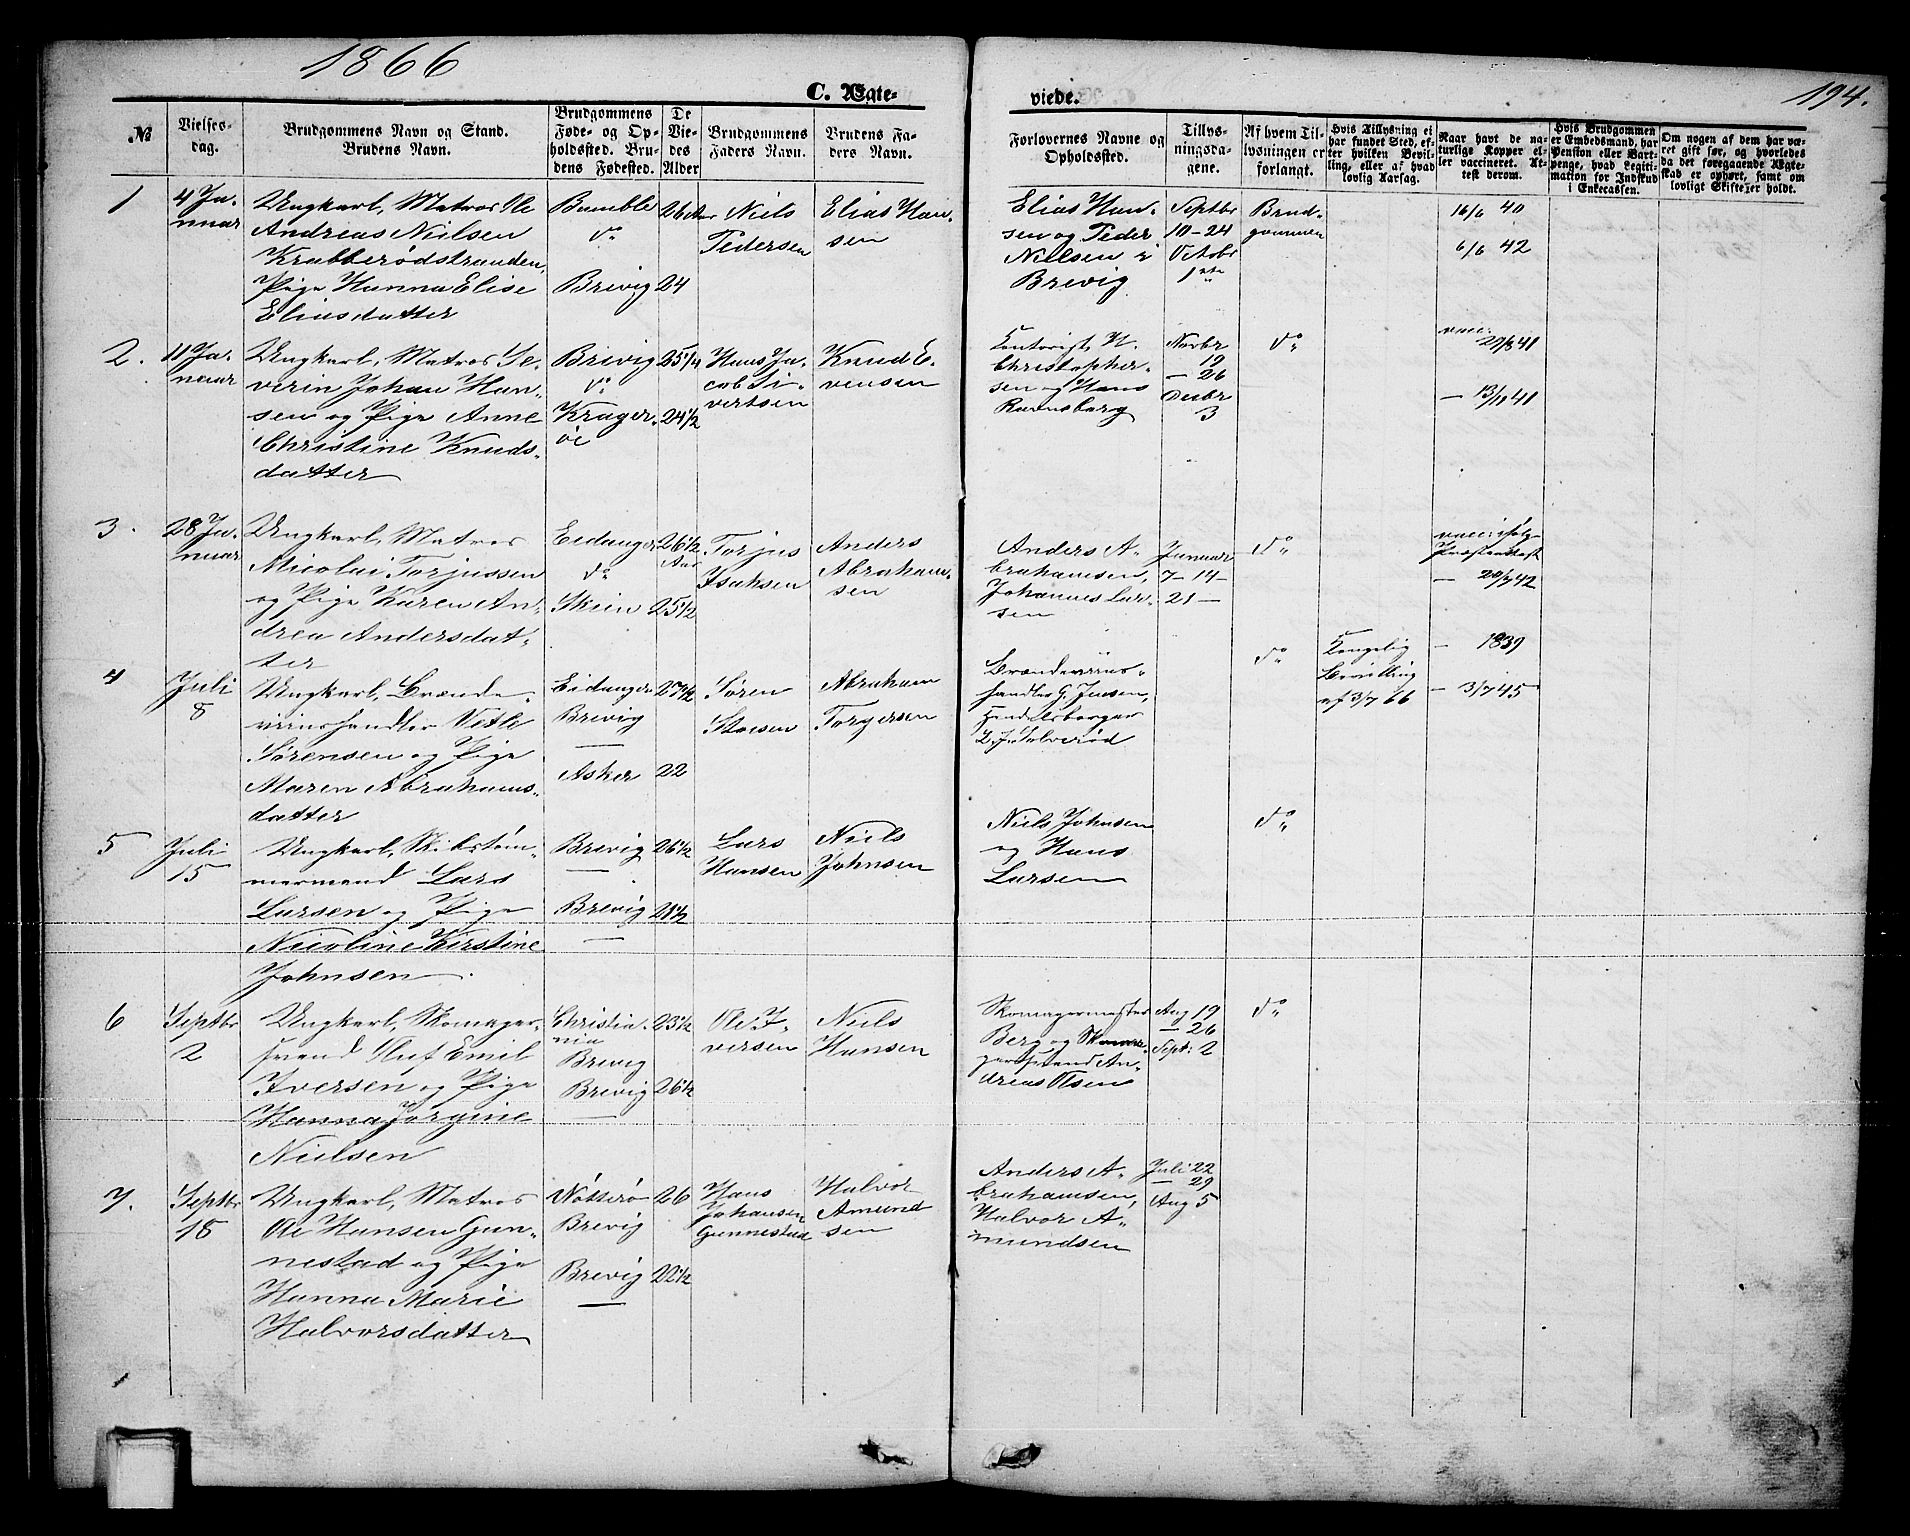 1866
194.
C. Ægte-
viede.
№
Vielses-
dag.
Brudgommens Navn og Stand.
Brudens Navn.
Brudgommens
Føde- og Op-
holdssted. Bru-
dens Fødested.
De
Vie-
des
Alder
Brudgommens
Faders Navn.
Brudens Fa-
ders Navn.
Forlovernes Navne og
Opholdssted.
Tillys-
ningsda-
gene.
Af hvem Til-
lysningen er
forlangt.
Hvis Tillysning ei
har fundet Sted, ef-
ter hvilken Bevil-
ling, eller af hvad
lovlig Aarsag.
Naar havt de na-
turlige Kopper el-
ler vaccineret. At-
test derom.
Hvis Brudgommen
er Embedsmand, har
Pension eller Vart-
penge, hvad Legiti-
mation for Indskud
i Enkecassen.
Om nogen af dem har væ-
ret gift før, og hvorledes
da det foregaaende Ægte-
skab er ophørt, samt om
lovligt Skifte er holdt.
1
4 Ja-
nuar
Ungkarl, Matros Ole
Andreas Nielsen
Krabberødstranden,
Pige Hanna Elise
Eliasdatter
Bamble
do
Brevig
26 Aar
24
Niels
Pedersen
Elias Han-
sen
Elias Han-
sen og Peder
Nielsen i
Brevig
Septbr
10-24
Octobr
1ste
Brud-
gommen
16/6 40
6/6 42
2.
11 Ja-
nuar
Ungkarl, Matros Se-
verin Johan Han-
sen og Pige Anne
Christine Knuds-
datter
Brevig
do
Krager-
øe
25 1/4
24 1/2
Hans Ja-
cob Si-
vertsen
Knud E-
vensen
Contorist N.
Christopher-
sen og Hans
Ravnsberg
Novbr
19
- 26
Decbr
3
do
vacc:
29/8 41
- 13/9 41
3.
28 Ja-
nuar
Ungkarl, Matros
Nicolai Torjussen
og Pige Karen An-
drea Andersdat-
ter
Eidanger
do
Skien
26 1/2
Aar
25 1/2
Torjus
Isaksen
Anders
Abraham-
sen
Anders A-
brahamsen,
Johannes Lar-
sen
Januar
7-14-
21-
do
vacc: ifølge
Præsteattest
- 20/7 42
4
Juli
8
Ungkarl, Brænde-
viinshandler Vetle
Sørensen og Pige
Maren Abrahams-
datter
Eidanger
Brevig
Asker
27 1/2
22
Søren
Abraham
Torgersen
Brændeviins-
handler G. Jensen,
Handelsborger
do
Kongelig
Bevilling
af 3/7 66
- 1839
- 3/7 45
5
Juli
15
Ungkarl, Skibstøm-
mermand Lars
Larsen og Pige
Nicoline Kirstine
Johnsen
Brevig
Brevig
26 1/2
21 1/2
Lars
Hansen
Niels
Johnsen
Niels Johnsen
og Hans
Larsen
do
6
Septbr
2
Ungkarl, Skomager-
svend Oluf Emil
Iversen og Pige
Hanna Jørgine
Nielsen
Christia-
nia
Brevig
Brevig
23 1/2
26 1/2
Ole I-
versen
Niels
Hansen
Skomagermester
Berg og Skoma-
gersvend An-
dreas Olsen
Aug 19
- 26
Sept: 2
do
7.
Septbr
18
Ungkarl, Matros
Ole Hansen Gun-
nestad og Pige
Hanna Marie
Halvorsdatter
Nøtterø
Brevig
Brevig
26
22 1/2
Hans
Johansen
Gunnestad
Halvor
Amund
sen
Anders A-
brahamsen,
Halvor A-
mundsen
Juli 22
- 29
Aug 5